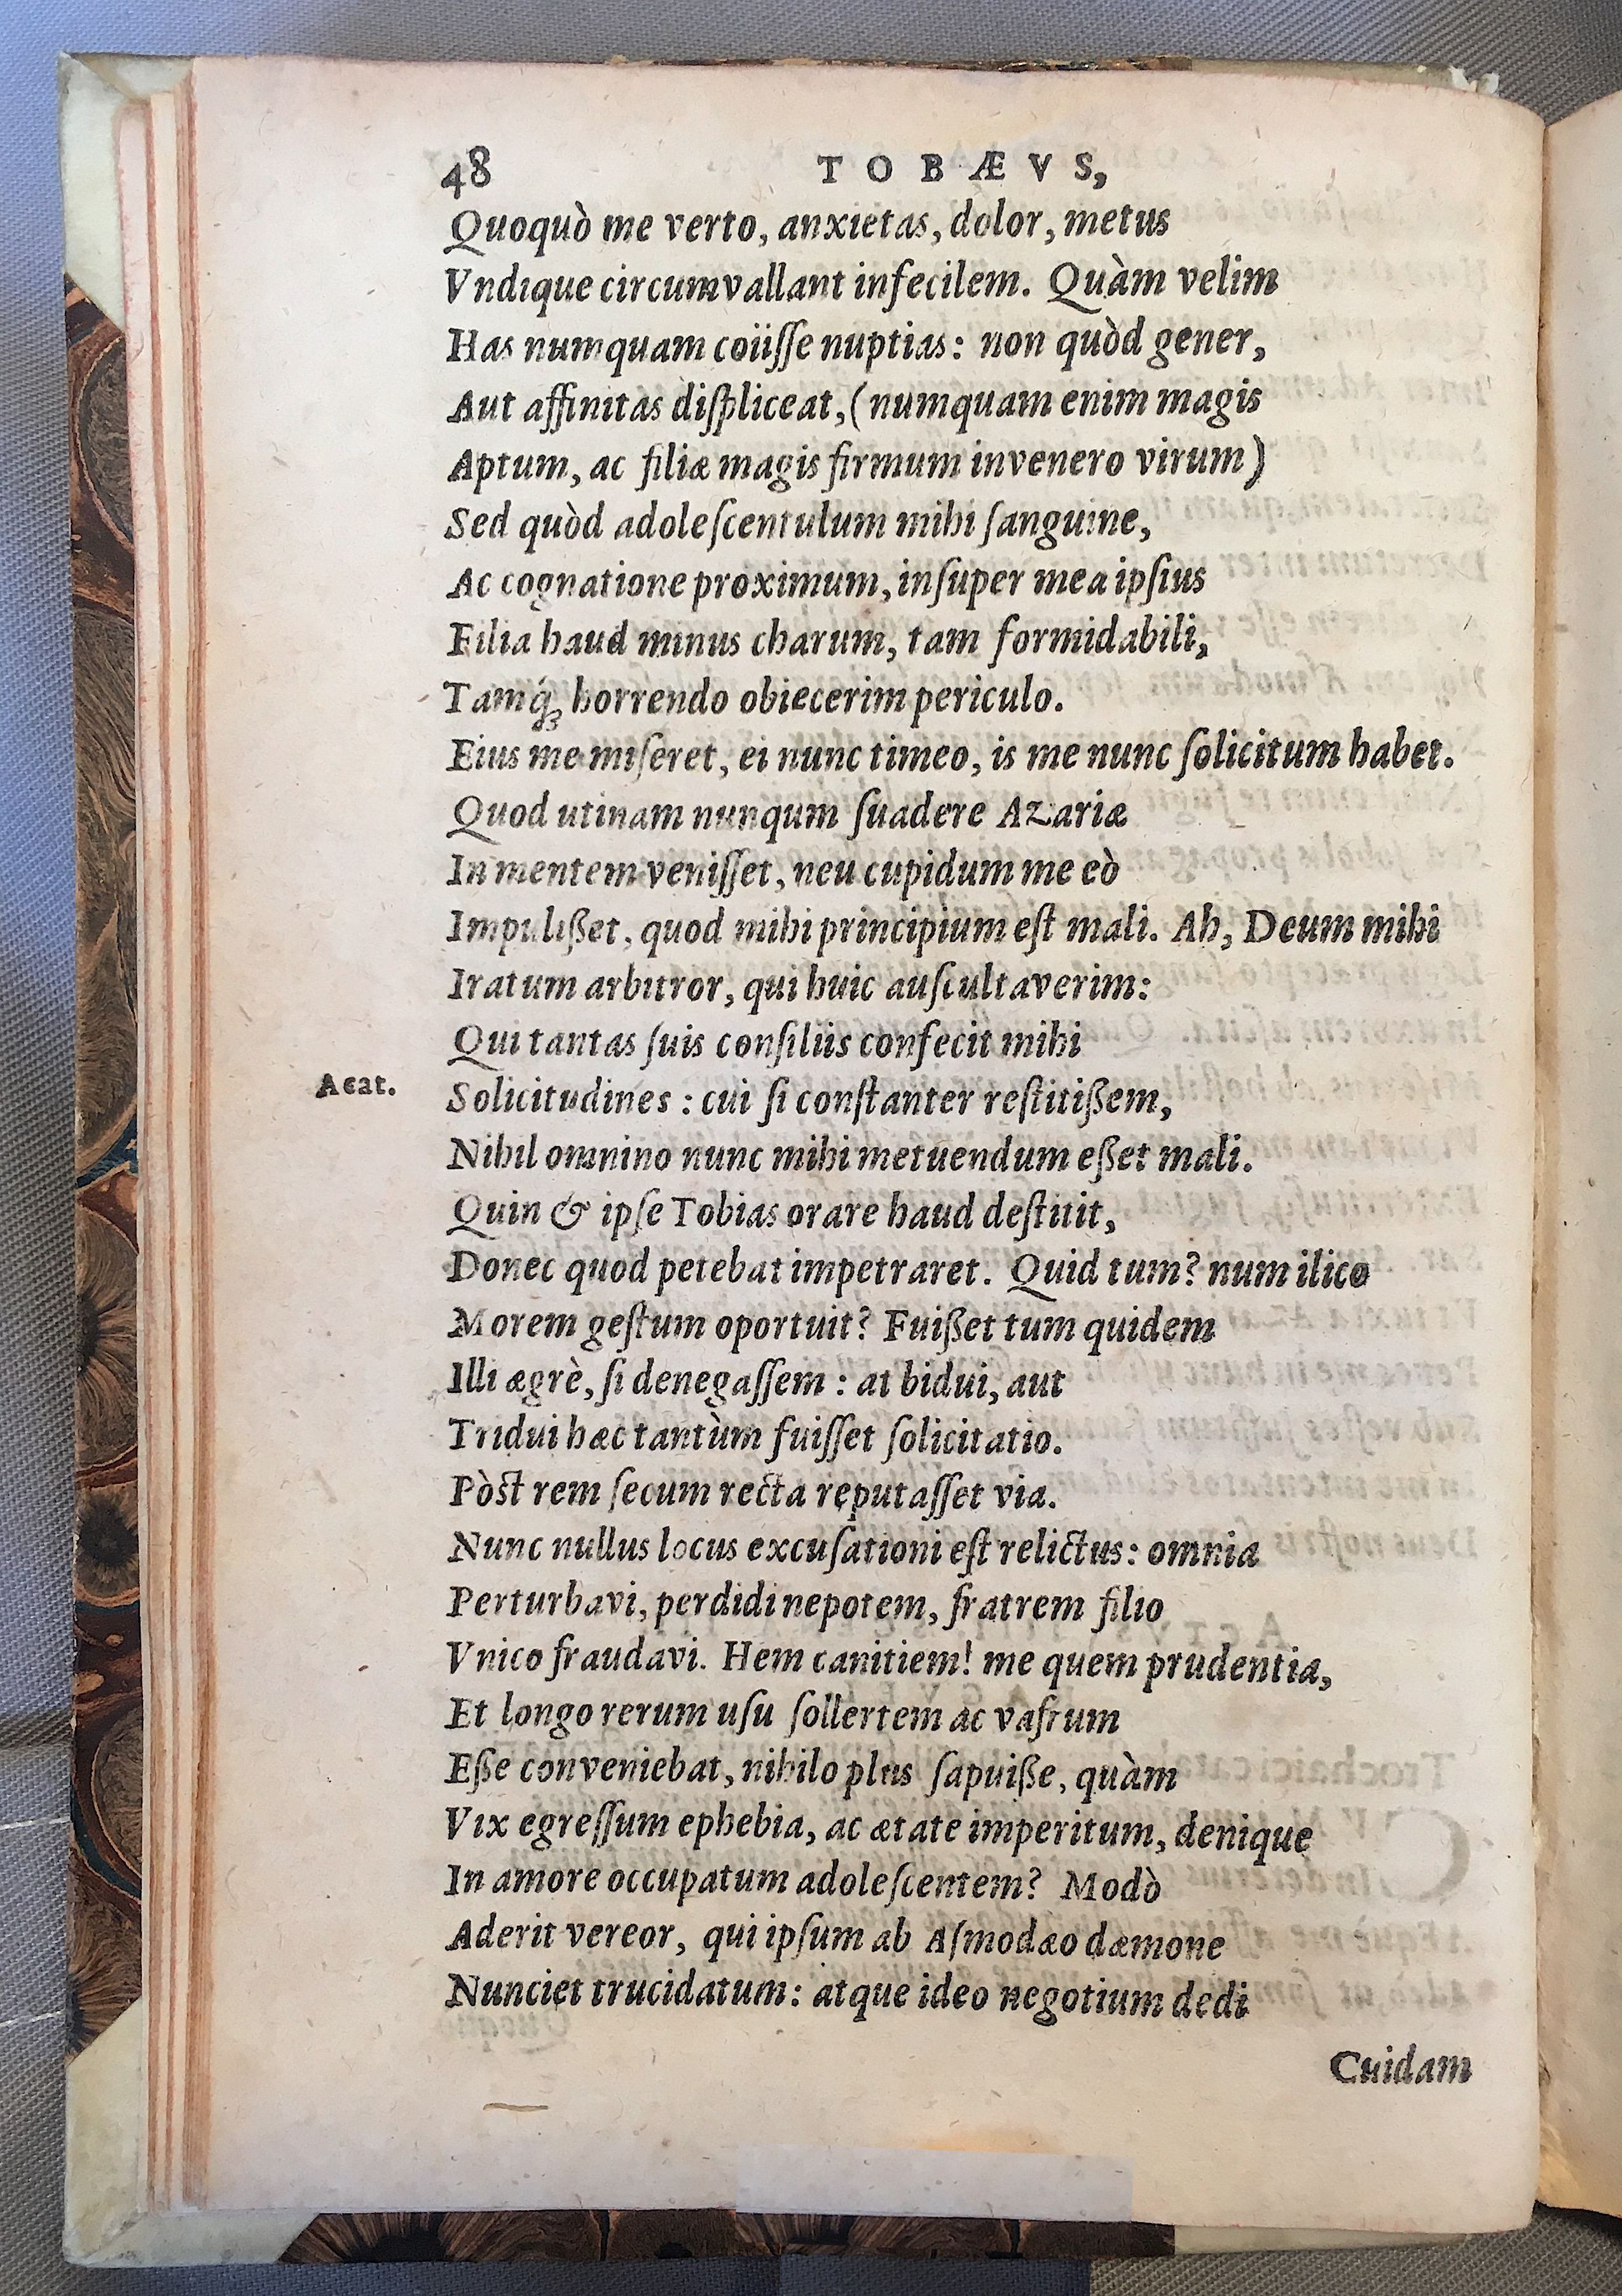 48 TOBÆVS,
Quoquò me verto, anxietas, dolor, metus
Vndique circumvallant infecilem. Quàm velim
Has numquam coiisſe nuptias: non quòd gener,
Aut affinitas diſpliceat, (numquam enim magis
Aptum, ac filiæ magis firmum invenero virum)
Sed quòd adoleſcentulum mihi ſanguine,
Ac cognatione proximum, inſuper mea ipſius
Filia haud minus charum, tam formidabili,
Tamq́ꝫ horrendo obiecerim periculo.
Eius me miſeret, ei nunc timeo, is me nunc ſolicitum habet.
Quod utinam nunqum ſuadere Azariæ
In mentem veniſſet, neu cupidum me eò
Impulißet, quod mihi principium eſt mali. Ah, Deum mihi
Iratum arbitror, qui huic auſcultaverim:
Qui tantas ſuis conſiliis confecit mihi
Acat. Solicitudines : cui ſi conſtanter reſtitißem,
Nihil omnino nunc mihi metuendum eßet mali.
Quin & ipſe Tobias orare haud deſtitit,
Donec quod petebat impetraret. Quid tum? num ilico
Morem geſtum oportuit? Fuißet tum quidem
Illi ægrè, ſi denegaſſem : at bidui, aut
Tridui hæc tantùm fuiſſet ſolicitatio.
Pòſt rem ſecum recta reputaſſet via.
Nunc nullus locus excuſationi eſt relictus: omnia
Perturbavi, perdidi nepotem, fratrem filio
Vnico fraudavi. Hem canitiem! me quem prudentia,
Et longo rerum uſu ſollertem ac vafrum
Eße conveniebat, nihilo plus ſapuiße, quàm
Vix egreſſum ephebia, ac ætate imperitum, denique
In amore occupatum adoleſcentem? Modò
Aderit vereor, qui ipſum ab Aſmodæo dæmone
Nunciet trucidatum: atque ideo negotium dedi
Cuidam